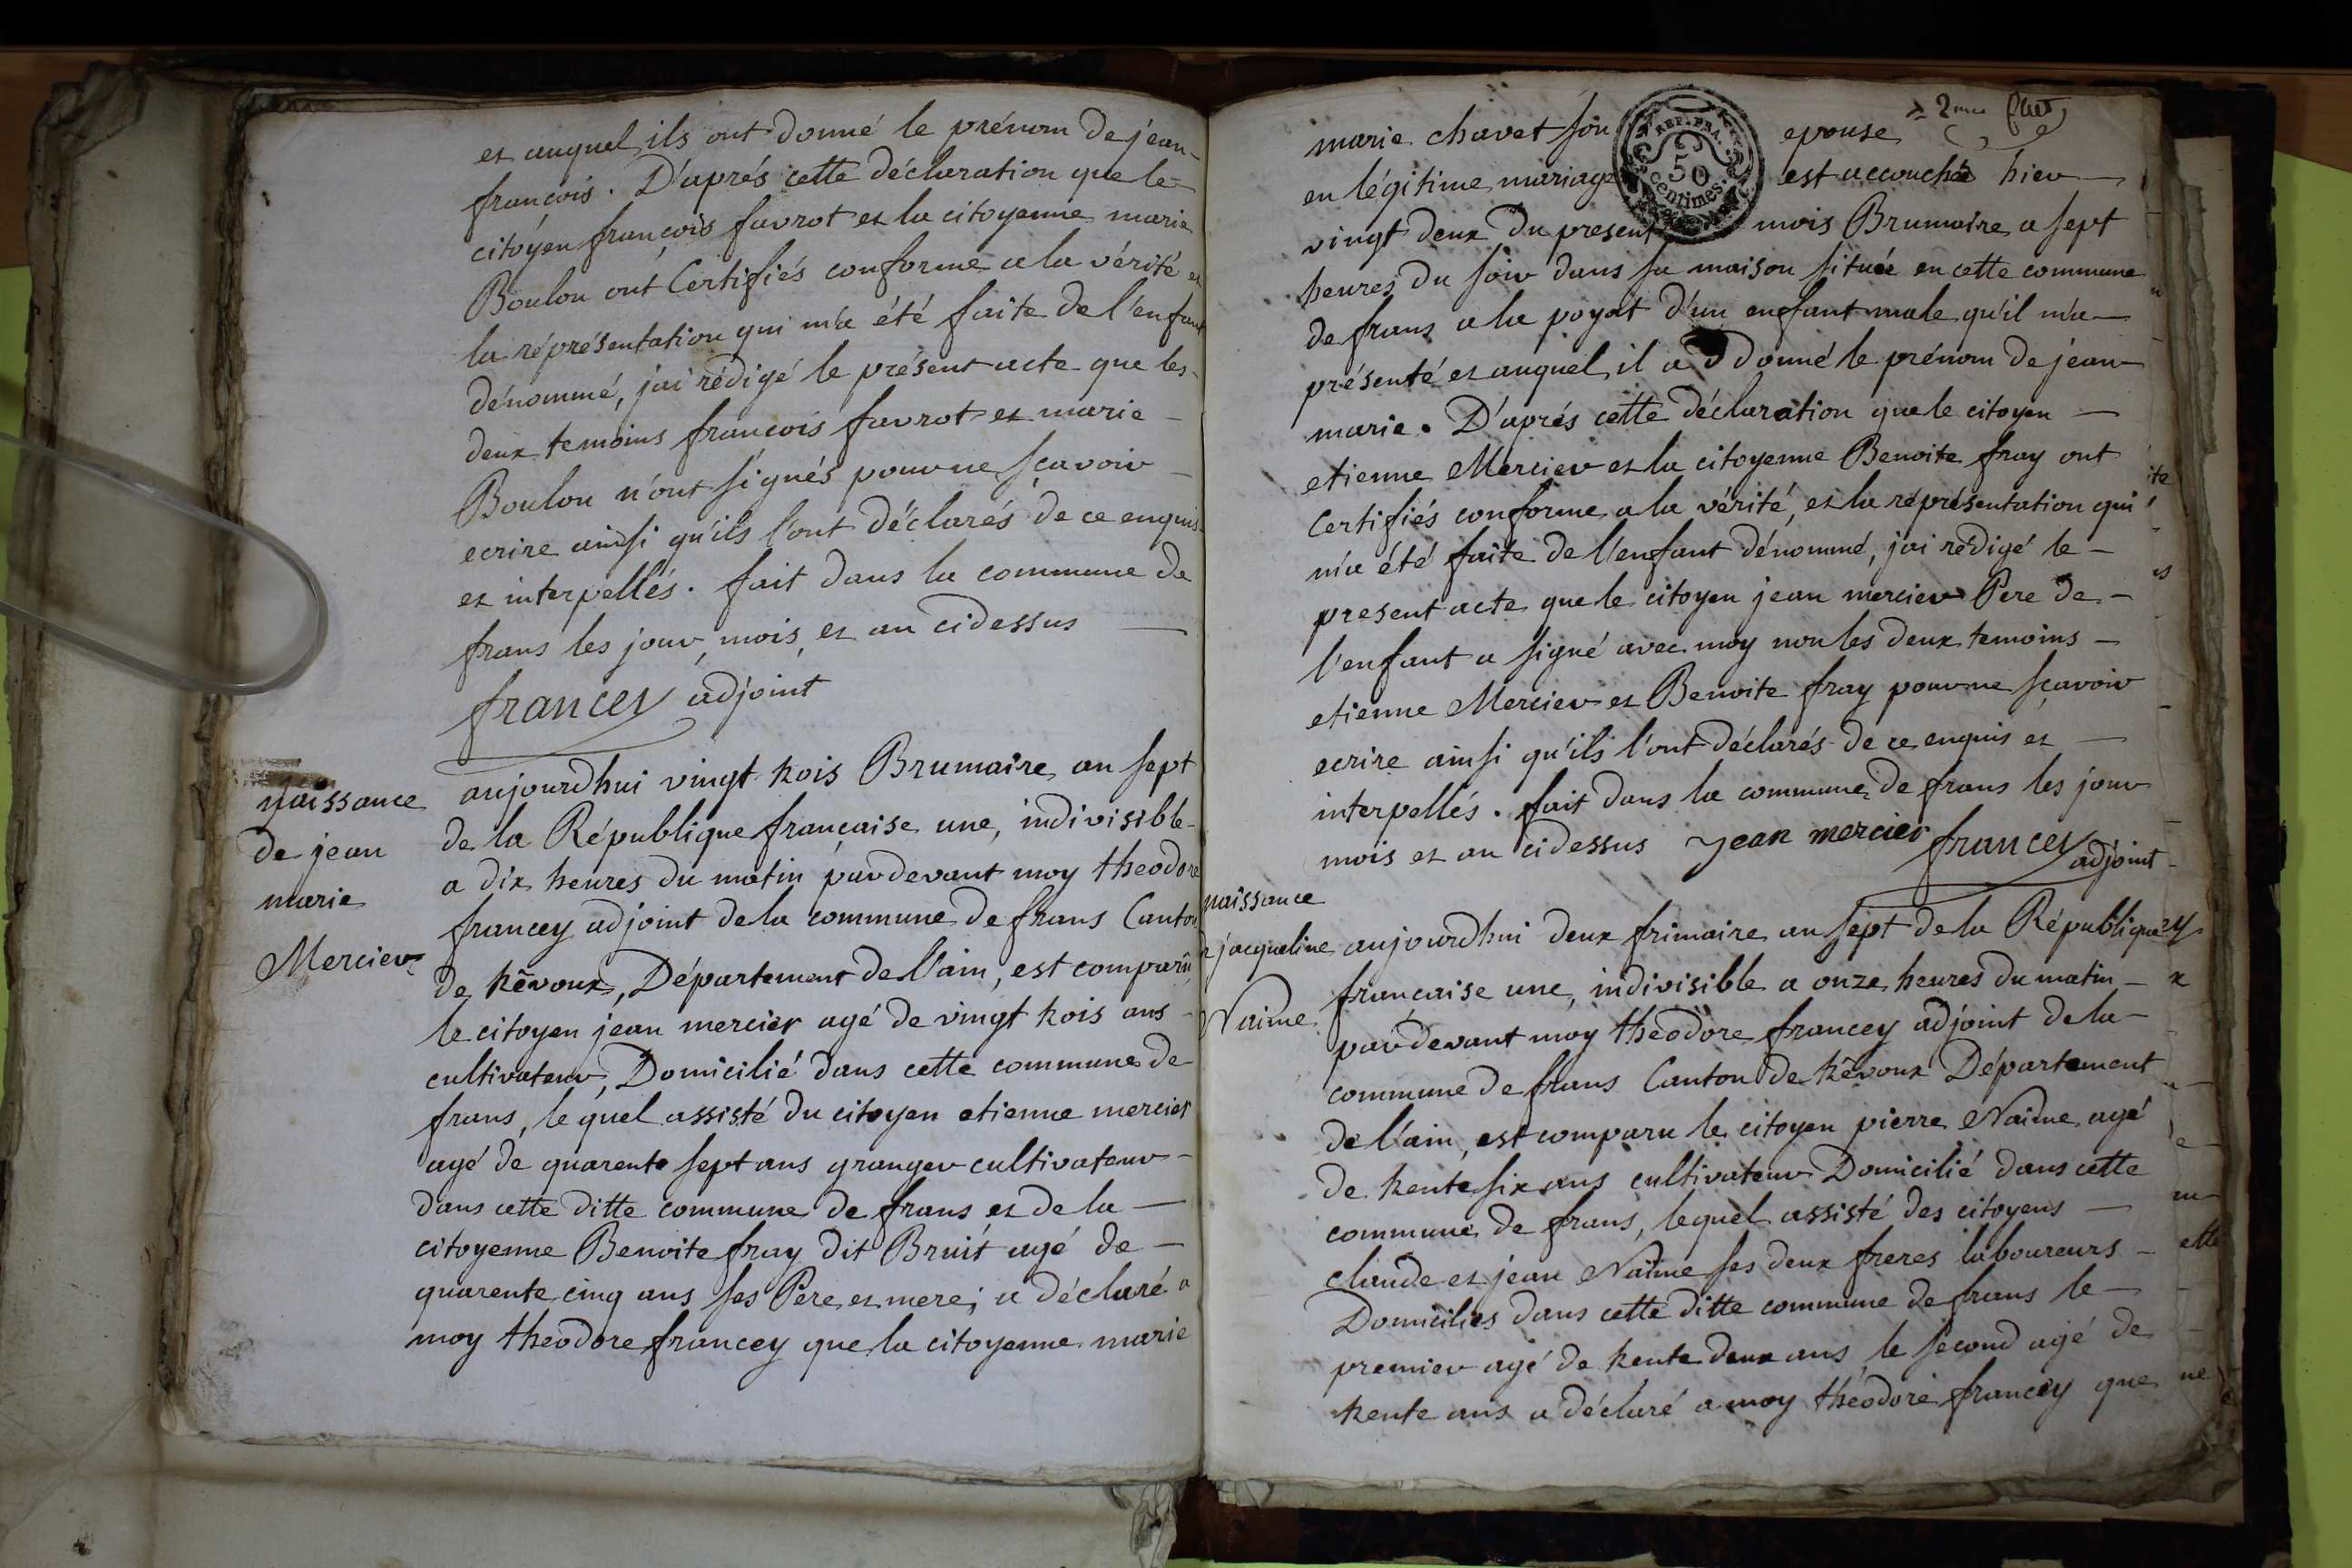 et auquel ils ont donné le prénom de jean-
françois. D'aprés cette déclaration que le
citoyen françois favrot et la citoyenne marie
Boulon ont Certifiés conforme a la vérité et
la réprésentation qui m'a été faite de l'enfant
dénommé, j'ai rédigé le présent acte que les
deux temoins françois favrot et marie
Boulon n'ont signés pour ne sçavoir
ecrire ainsi qu'ils l'ont déclarés de ce enquis
et interpellés. fait dans la commune de
frans les jour, mois, et an cidessus
francey adjoint
naissance
de jean
marie
Mercier
aujourdhui vingt trois Brumaire an sept
de la République française une, indivisible
a dix heures du matin pardevant moy theodore
francey adjoint de la commune de frans Canton
de trêvoux, Département de l'ain, est comparu
le citoyen jean mercier agé de vingt trois ans
cultivateur, Domicilié dans cette commune de
frans, le quel assisté du citoyen etienne mercier
agé de quarente sept ans granger cultivateur
dans cette ditte commune de frans et de la
citoyenne Benoite fray dit Bruit agé de
quarente cinq ans ses Pere et mere; a déclaré a
moy theodore francey que la citoyenne marie
2me
marie chavet son epouse
REP. FRA.
50
centimes.
en légitime mariage est accouchée hier
vingt deux du present mois Brumaire a sept
heures du soir dans sa maison située en cette commune
de frans a la poyat d'un enfant male qu'il m'a
présenté et auquel il a donné le prénom de jean
marie. D'aprés cette déclaration que le citoyen
etienne Mercier et la citoyenne Benoite fray ont
Certifiés conforme a la vérité, et la réprésentation qui
m'a été faite de l'enfant dénommé, j'ai rédigé le
present acte que le citoyen jean mercier Pere de
l'enfant a signé avec moy non les deux temoins
etienne Mercier et Benoite fray pour ne sçavoir
ecrire ainsi qu'ils l'ont déclarés de ce enquis et
interpellés. fait dans la commune de frans les jour
mois et an cidessus jean mercier francey adjoint
naissance
jacqueline
Naime
aujourdhui deux frimaire an sept de la République
française une, indivisible a onze heures du matin
pardevant moy théodore francey adjoint de la
commune de frans Canton de trêvoux Département
de l'ain, est comparu le citoyen pierre Naime agé
de trente six ans cultivateur Domicilié dans cette
commune de frans, lequel assisté des citoyens
claude et jean Naime ses deux freres laboureurs
Domiciliés dans cette ditte commune de frans le
premier agé de trente deux ans, le second agé de
trente ans a déclaré a moy théodore francey que